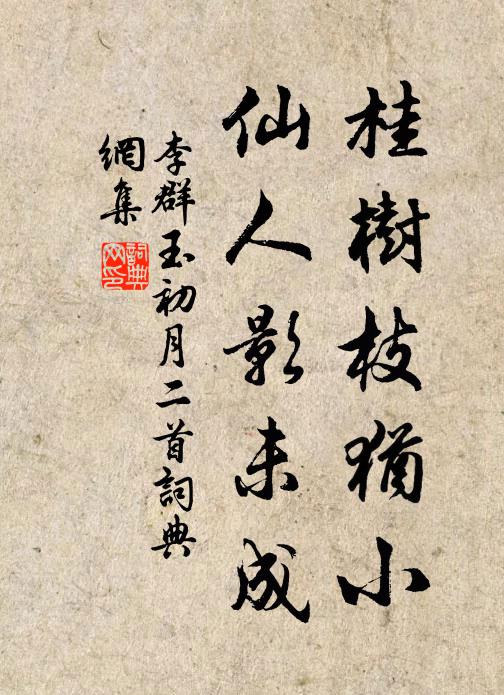 桂樹枝猶小
仙人影未成
李群玉初月二首詞典
網集
詞典网印